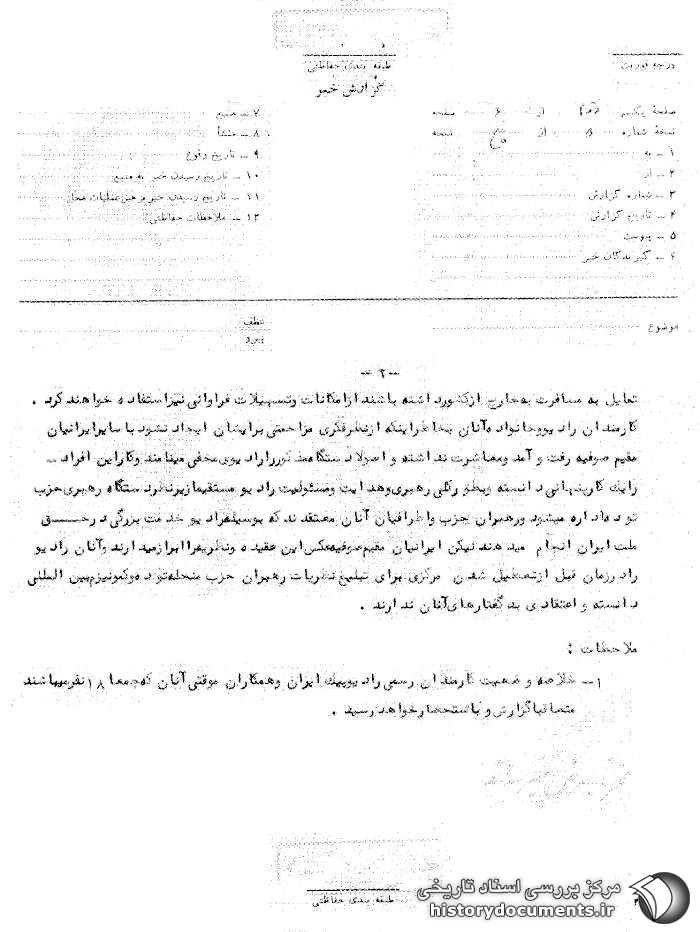 درجه فوریت
طبقه بندی حفاظتی
گزارش خبر
صفحه یکم از ۶ صفحه
نسخه شماره ۵ از نسخه
۱ ــ به
۲ ــ از
۳ ــ شماره گزارش
۴ ــ تاریخ گزارش
۵ ــ پیوست
۶ ــ گیرندگان خبر
۷ ــ منبع
۸ ــ منشأ
۹ ــ تاریخ وقوع
۱۰ ــ تاریخ رسیدن خبر به منبع
۱۱ ــ تاریخ رسیدن خبر برهبر عملیات محل
۱۲ ــ ملاحظات حفاظتی
موضوع
عطف
پیرو
ــ ۲ ــ
تمایل به مسافرت بخارج از کشور داشته باشند از امکانات و تسهیلات فراوانی نیز استفاده خواهند کرد .
کارمندان رادیو و خانواده آنان بخاطر اینکه از نظر فکری مزاحمتی برایشان ایجاد نشود با سایر ایرانیان
مقیم صوفیه رفت و آمد و معاشرت نداشته و اصولا دستگاه مذکور را رادیوی مخفی مینامند و کار این افراد ــ
را یک کار پنهانی دانسته و بطور کلی رهبری و هدایت و مسئولیت رادیو مستقیما زیر نظر دستگاه رهبری حزب
توده اداره میشود و رهبران حزب و اطرافیان آنان معتقدند که بوسیله رادیو خدمت بزرگی در حق
ملت ایران انجام میدهند لیکن ایرانیان مقیم صوفیه عکس این عقیده و نظریه را ابراز میدارند و آنان رادیو
را در زمان قبل از تعطیل شدن مرکزی برای تبلیغ نظریات رهبران حزب منحله توده و کمونیزم بین المللی
دانسته و اعتقادی به گفتارهای آنان ندارند .
ملاحظات :
۱ــ خلاصه وضعیت کارمندان رسمی رادیو پیک ایران و همکاران موقتی آنان که جمعا ۱۸ نفر میباشند
متعاقبا گزارش و باستحضار خواهد رسید .
طبقه بندی حفاظتی
مرکز بررسی اسناد تاریخی
historydocuments.ir